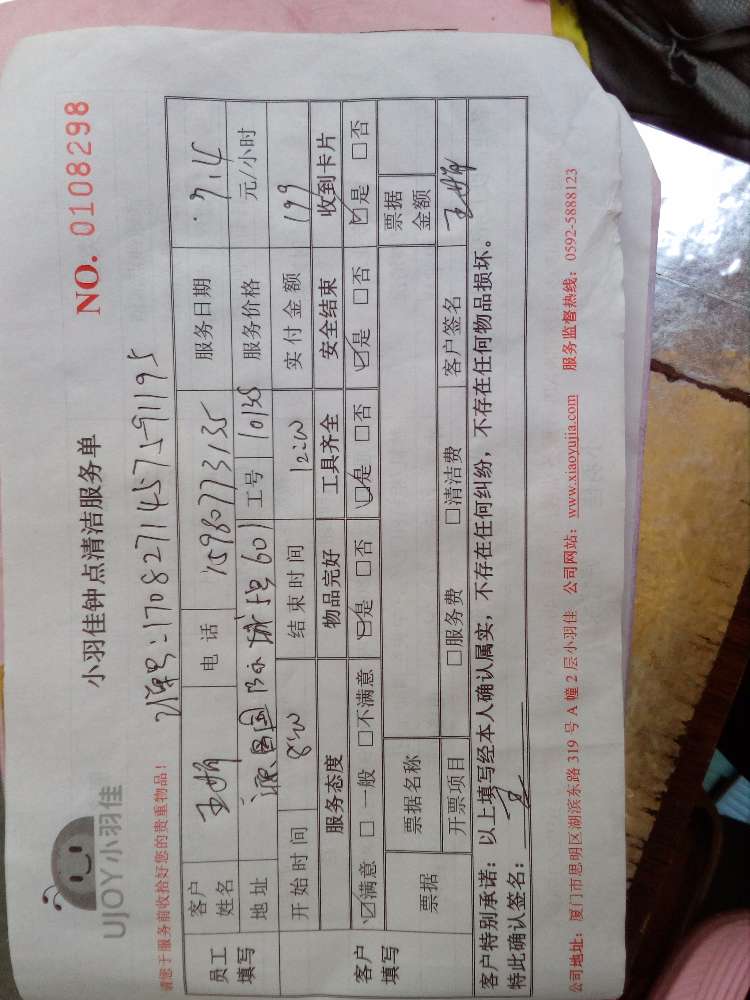 UJOY小羽佳
小羽佳钟点清洁服务单
NO. 0108298
订单号:170827145759119 5
请您于服务前收拾好您的贵重物品!
员工填写
客户姓名 王娇 电话 15980773135 服务日期 9.4
地址 源昌国际城 601 工号 10135 服务价格 元/小时
开始时间 8:00 结束时间 12:00 实付金额 199
客户填写
服务态度 物品完好 工具齐全 安全结束 收到卡片
☑满意 □一般 □不满意 ☑是 □否 ☑是 □否 ☑是 □否 ☑是 □否
票据 票据名称 票据金额
开票项目 □服务费 □清洁费 客户签名 王娇
客户特别承诺:以上填写经本人确认属实,不存在任何纠纷,不存在任何物品损坏。
特此确认签名:
公司地址:厦门市思明区湖滨东路 319 号 A 幢 2 层小羽佳 公司网站:www.xiaoyujia.com 服务监督热线:0592-5888123